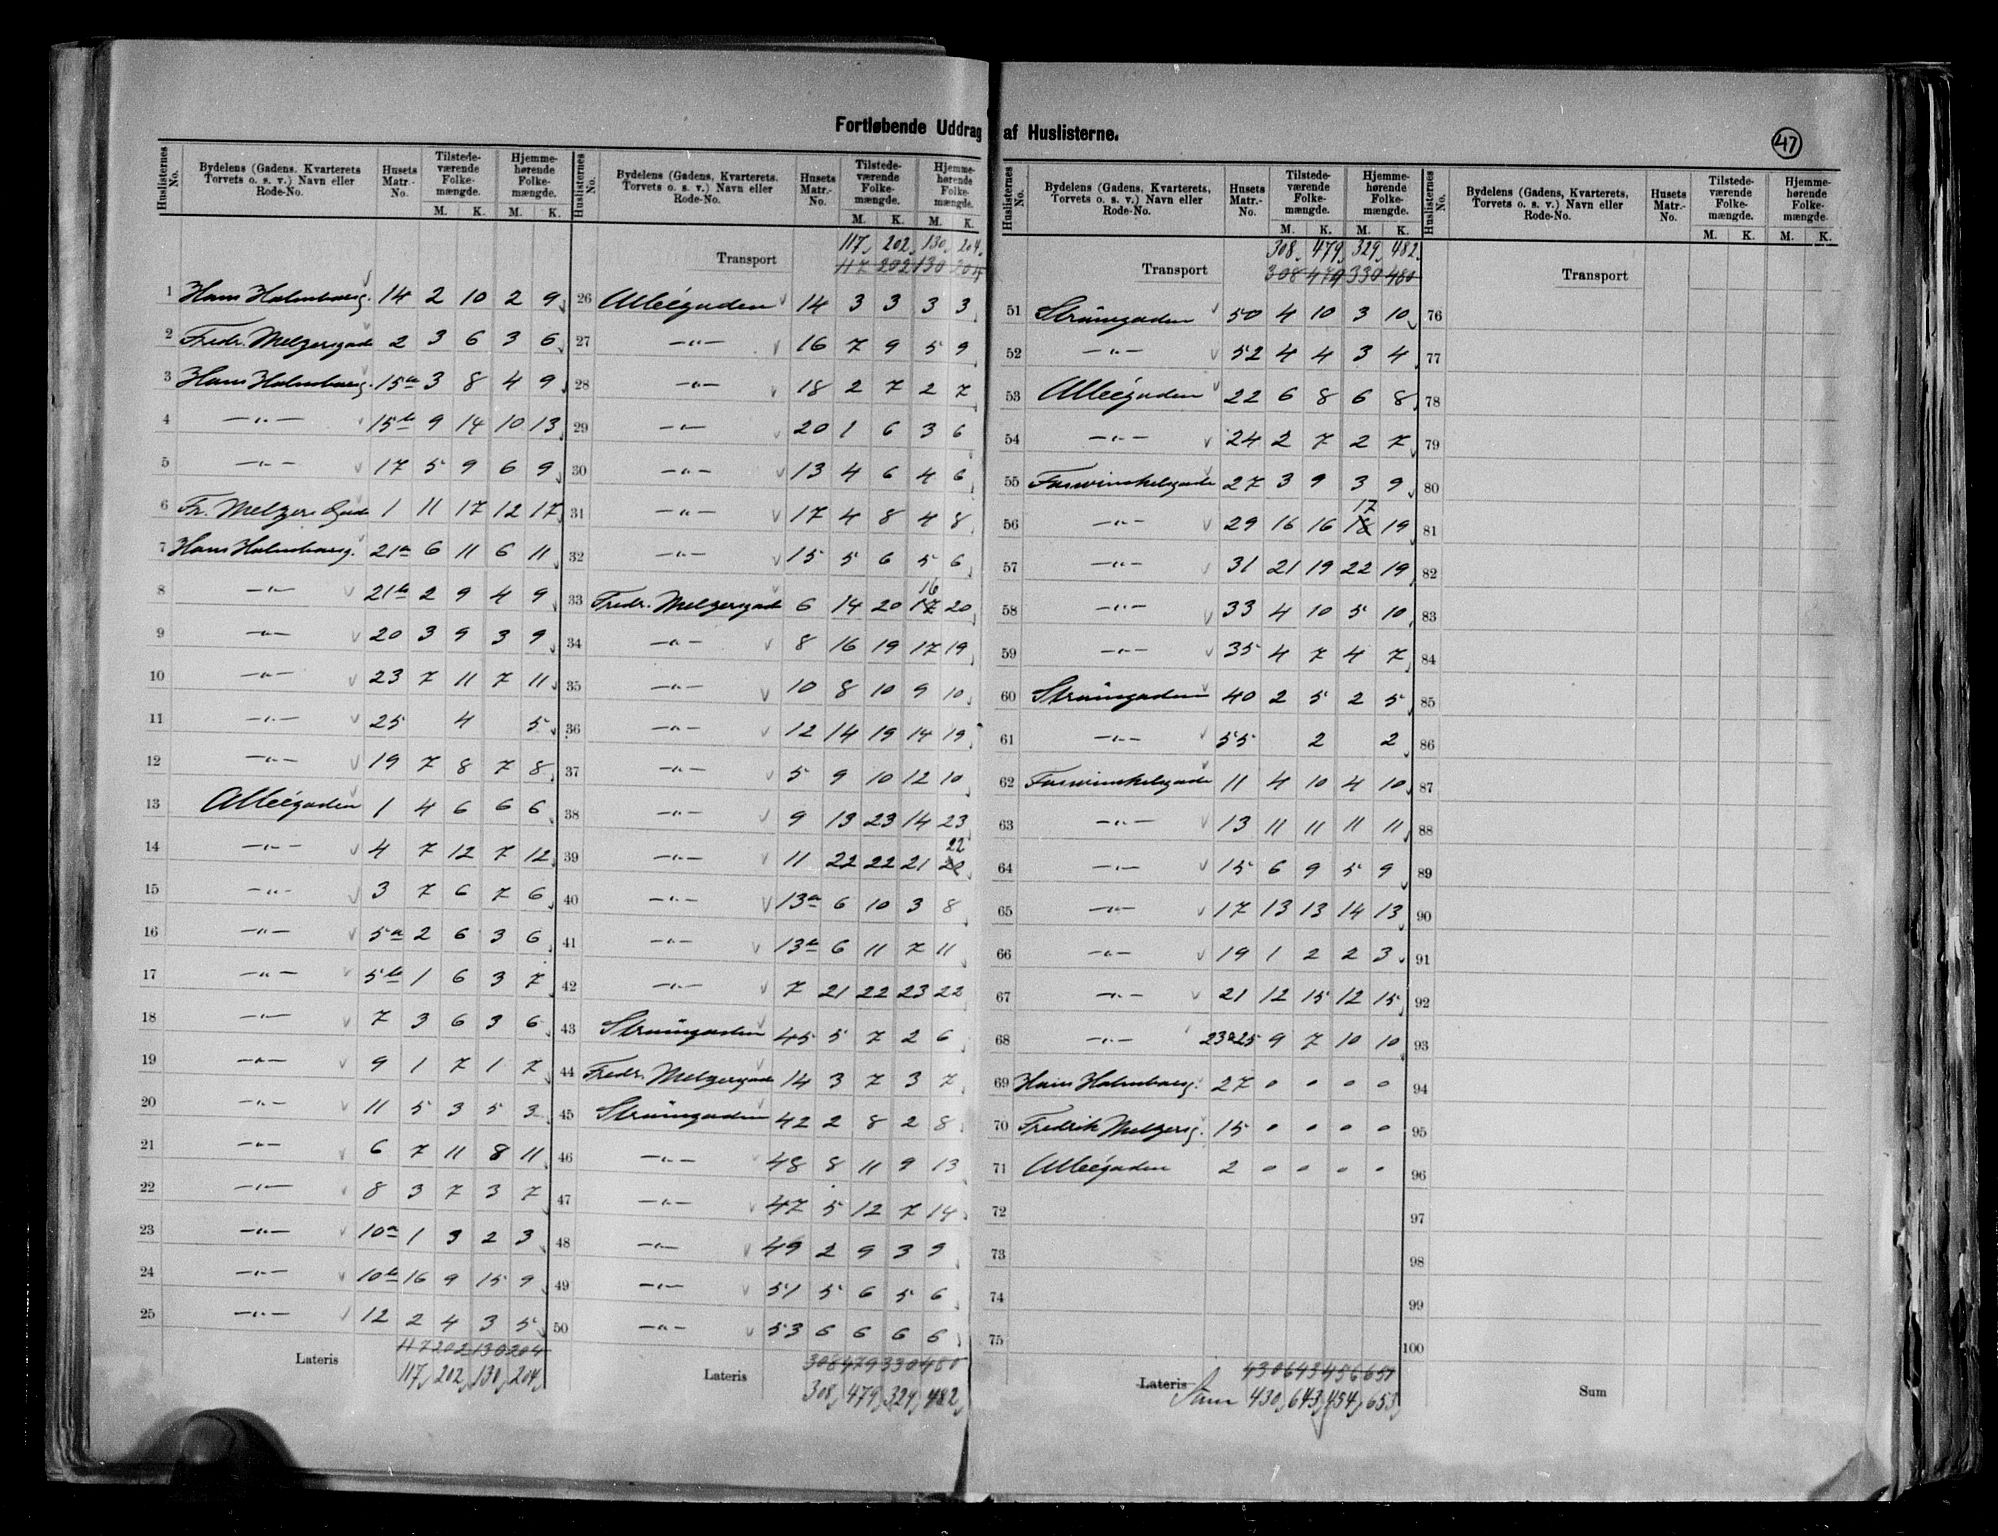 Fortløbende Uddrag af Huslisterne.
47
Huslisternes No. Bydelens (Gadens, Kvarterets Torvets o. s. v.) Navn eller Rode-No. Husets Matr.-No. Tilstedeværende Folkemængde. M. K. Hjemmehørende Folkemængde. M. K.
1 Hans Holmboesg. 14 2 10 2 9
2 Fredr. Melzersgade 2 3 6 3 6
3 Hans Holmboesg. 15a 3 8 4 9
4 —"— 15b 9 14 10 13
5 —"— 17 5 9 6 9
6 Fr. Melzers Gade 1 11 17 12 17
7 Hans Holmboesg. 21a 6 11 6 11
8 —"— 21b 2 9 4 9
9 —"— 20 3 9 3 9
10 —"— 23 7 11 7 11
11 —"— 25 4 5
12 —"— 19 7 8 7 8
13 Alleégaden 1 4 6 6 6
14 —"— 4 7 12 7 12
15 —"— 3 7 6 7 6
16 —"— 5a 2 6 3 6
17 —"— 5b 1 6 3 7
18 —"— 7 3 6 3 6
19 —"— 9 1 7 1 7
20 —"— 11 5 3 5 3
21 —"— 6 7 11 8 11
22 —"— 8 3 7 3 7
23 —"— 10a 1 3 2 3
24 —"— 10b 16 9 15 9
25 —"— 12 2 4 3 5
117 202 130 204
Lateris 117 202 130 204
Huslisternes No. Bydelens (Gadens, Kvarterets. Torvets o. s. v.) Navn eller Rode-No. Husets Matr.-No. Tilstedeværende Folkemængde. M. K. Hjemmehørende Folkemængde. M. K.
117 202 130 204
Transport 117 202 130 204
26 Alleégaden 14 3 3 3 3
27 —"— 16 7 9 5 9
28 —"— 18 2 7 2 7
29 —"— 20 1 6 3 6
30 —"— 13 4 6 4 6
31 —"— 17 4 8 4 8
32 —"— 15 5 6 5 6
33 Fredr. Melzersgade 6 14 20 17 16 20
34 —"— 8 16 19 17 19
35 —"— 10 8 10 9 10
36 —"— 12 14 19 14 19
37 —"— 5 9 10 12 10
38 —"— 9 13 23 14 23
39 —"— 11 22 22 21 20 22
40 —"— 13a 6 10 3 8
41 —"— 13b 6 11 7 11
42 —"— 7 21 22 23 22
43 Strømgaden 45 5 7 2 6
44 Fredr. Melzersgade 14 3 7 3 7
45 Strømgaden 42 2 8 2 8
46 —"— 48 8 11 9 13
47 —"— 47 5 12 7 14
48 —"— 49 2 9 3 9
49 —"— 51 5 6 5 6
50 —"— 53 6 6 6 6
308 479 330 480
Lateris 308 479 329 482
Huslisternes No. Bydelens (Gadens, Kvarterets, Torvets o. s. v.) Navn eller Rode-No. Husets Matr.-No. Tilstedeværende Folkemængde. M. K. Hjemmehørende Folkemængde. M. K.
308 479 329 482
Transport 308 479 330 480
51 Strømgaden 50 4 10 3 10
52 —"— 52 4 4 3 4
53 Alleégaden 22 6 8 6 8
54 —"— 24 2 7 2 7
55 Fosswinckelsgade 27 3 9 3 9
56 —"— 29 16 16 18 17 19
57 —"— 31 21 19 22 19
58 —"— 33 4 10 5 10
59 —"— 35 4 7 4 7
60 Strømgaden 40 2 5 2 5
61 —"— 55 2 2
62 Fosswinckelsgade 11 4 10 4 10
63 —"— 13 11 11 11 11
64 —"— 15 6 9 5 9
65 —"— 17 13 13 14 13
66 —"— 19 1 2 2 3
67 —"— 21 12 15 12 15
68 —"— 23 & 25 9 7 10 10
69 Hans Holmboesg. 27 0 0 0 0
70 Fredrik Melzersg. 15 0 0 0 0
71 Alleégaden 2 0 0 0 0
72
73
74
75
430 643 456 651
Lateris Sum 430 643 454 653
Huslisternes No. Bydelens (Gadens, Kvarterets, Torvets o. s. v.) Navn eller Rode-No. Husets Matr.-No. Tilstedeværende Folkemængde. M. K. Hjemmehørende Folkemængde. M. K.
Transport
76
77
78
79
80
81
82
83
84
85
86
87
88
89
90
91
92
93
94
95
96
97
98
99
100
Sum